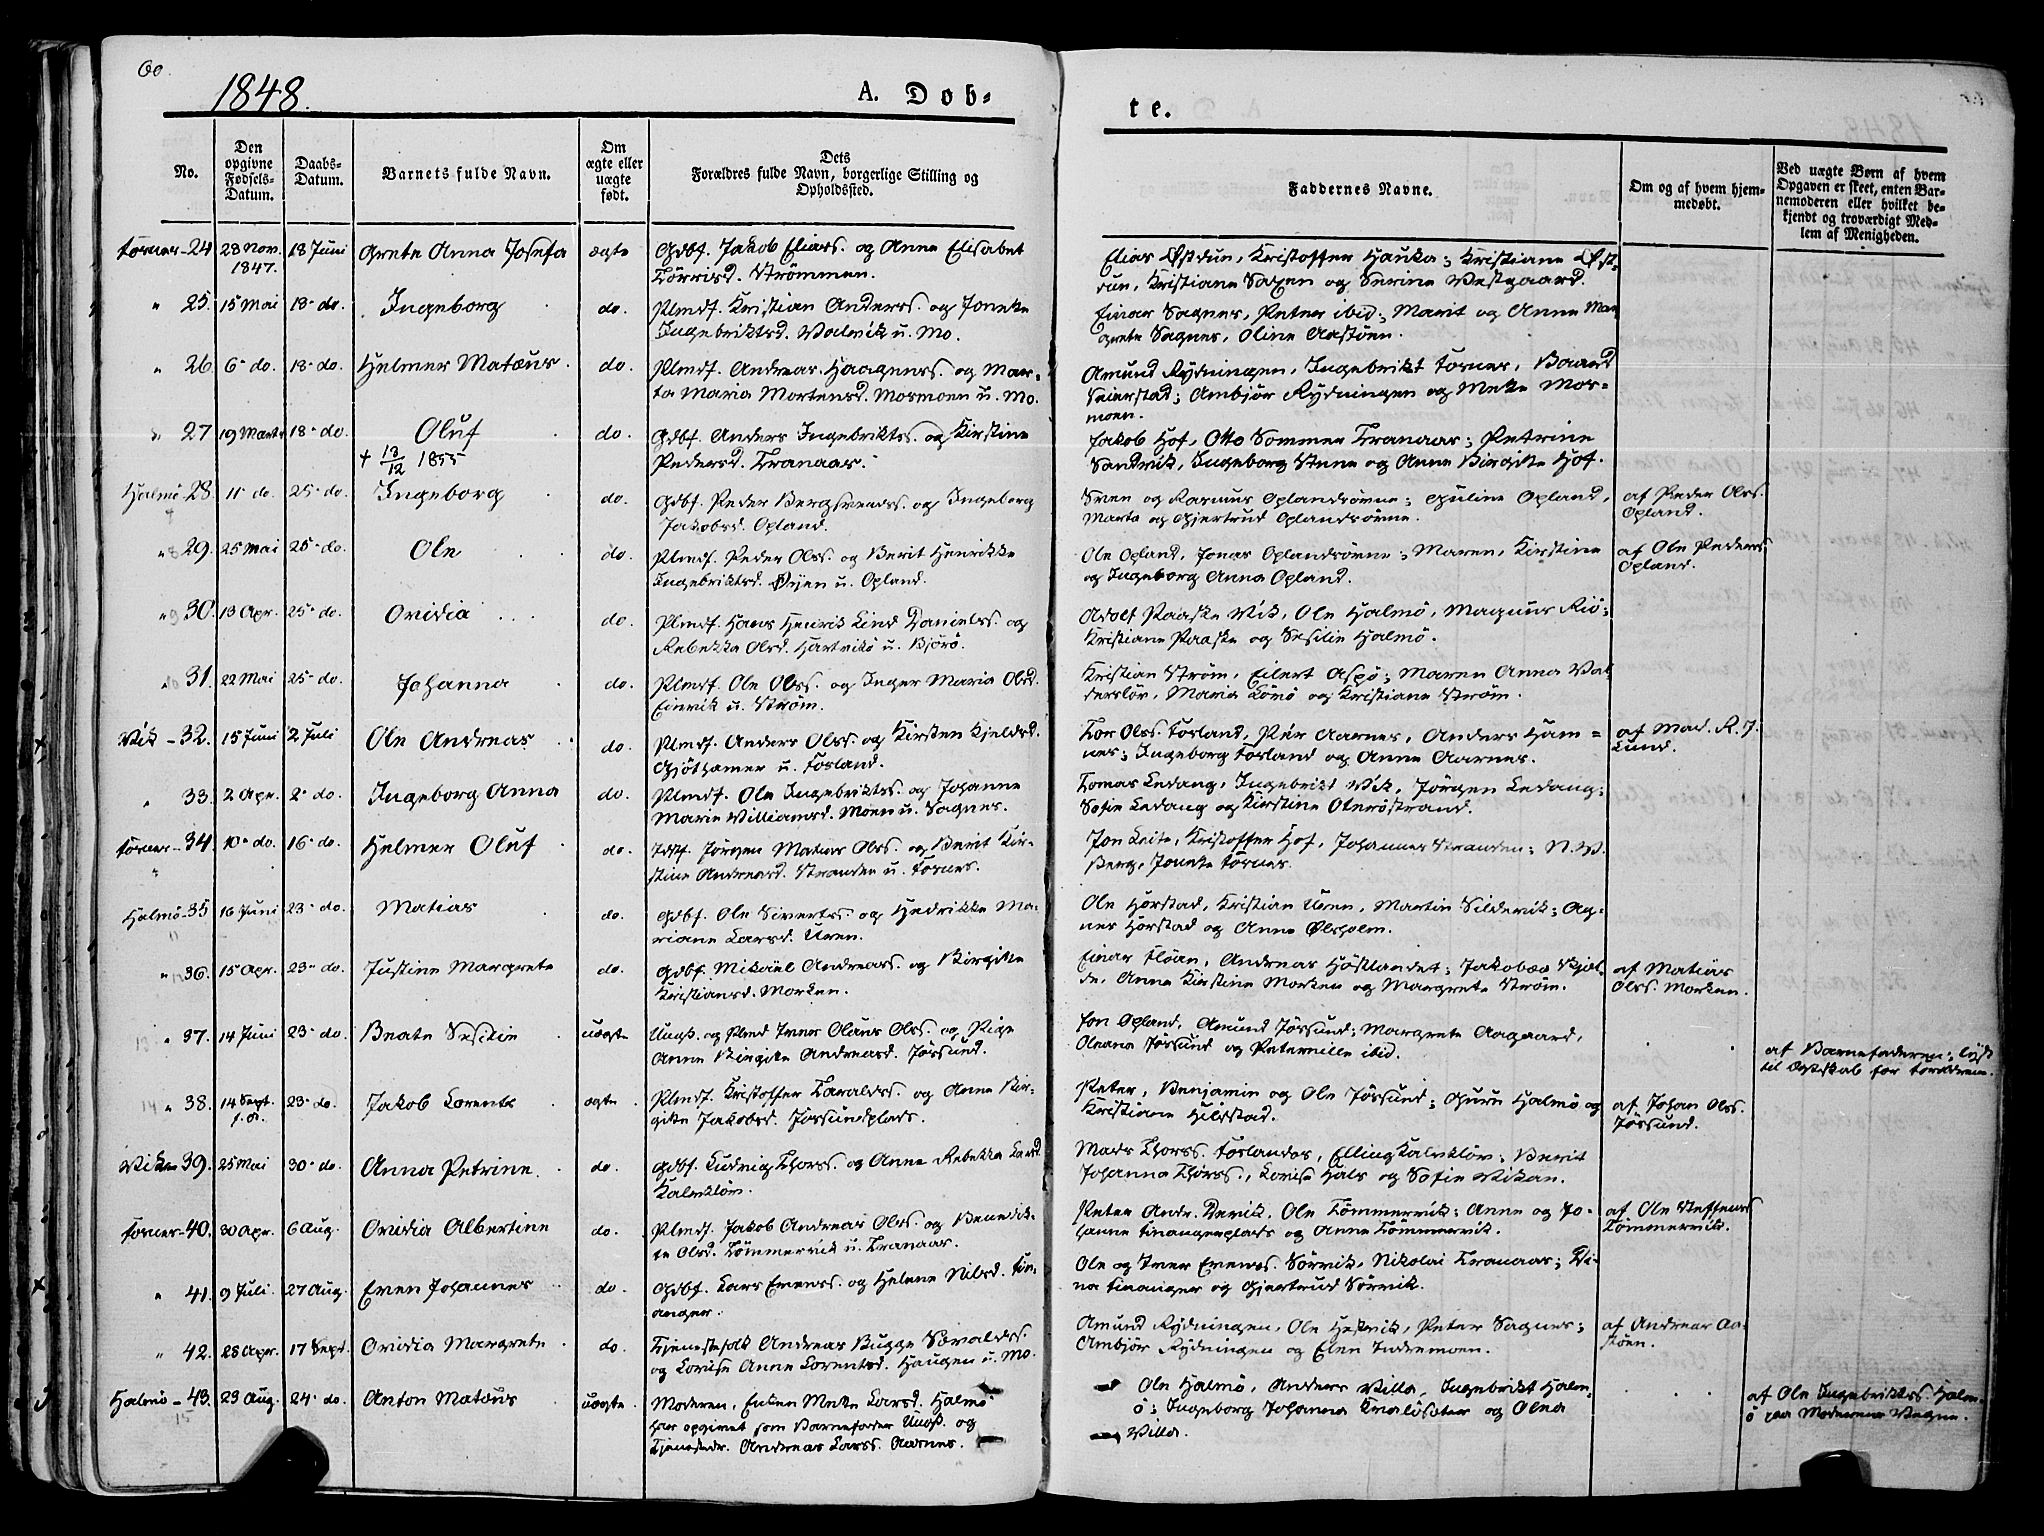 60.
1848.
A. Døb-
te.
No.
Den opgivne Fødsels-Datum.
Daabs-Datum.
Barnets fulde Navn.
Om ægte eller uægte født.
Dets Forældres fulde Navn, borgerlige Stilling og Opholdssted.
Faddernes Navne.
Om og af hvem hjemmedøbt.
Ved uægte Børn af hvem Opgaven er skeet, enten Barnemoderen eller hvilket bekjendt og troværdigt Medlem af Menigheden.
Fosnes - 24 28 Nov. 1847. 18 Juni Grete Anna Josefa ægte Gdbf. Jakob Elias. og Anne Elisabet
Tørrisd. Strømmen.
Elias Østvun, Kristoffer Hauka; Kristiane Øst-
vun, Kristiane Saxen og Serine Vestgaard.
" 25. 15 Mai 18 - do. Ingeborg do. Plmdf. Kristian Anderss. og Joneke
Ingebriktsd. Walvik u. Mo.
Einar Sagnes, Petter ibid; Marit og Anne Mar-
grete Sagnes, Oline Aastöen.
" 26. 6 - do. 18 - do. Helmer Matæus do. Plmdf. Andreas Haagenss. og Mar-
ta Maria Mortensd. Mosmoen u. Mo.
Amund Rydningen, Ingebrikt Fosnes, Baard
Seierstad; Ambjør Rydningen og Meke Mos-
moen.
" 27 19 Marts 18 - do. Oluf do. Gdbf. Anders Ingebriktss. og Kirstine
+ 13/12 1855
Pedersd. Tranaas.
Jakob Hof, Otto Sommer Tranaas; Petrine
Sandvik, Ingeborg Stene og Anne Birgitte Hof.
Halmö - 28. 11 - do. 25 - do. Ingeborg do. Gdbf. Peder Bergsvends. og Ingeborg
Jakobsd. Opland.
Sven og Rasmus Oplandsörne; Guline Opland,
Marta og Gjertrud Oplandsörne.
af Peder Olss.
Opland.
" 29. 25 Mai 25 - do. Ole do. Plmdf. Peder Olss. og Berit Henrikke
Ingebriktsd. Øyen u. Opland.
Ole Opland, Jonas Oplandsörne; Maren, Kirstine
og Ingeborg Anna Opland.
af Ole Peders.
Opland.
" 30. 13 Apr. 25 - do. Ovidia do. Plmdf. Hans Henrik Lind Daniels. og
Rebekka Olsd. Hartvikö u. Bjørö.
Adolf Paaske Vik, Ole Halmö, Magnus Riö;
Kristiane Paaske og Sesilie Halmö.
" 31. 22 Mai 25 - do. Johanna do. Plmdf. Ole Olss. og Inger Maria Olsd.
Einvik u. Strøm.
Kristian Strøm, Eilert Aspö; Maren Anna Val-
derslöv, Maria Lömö og Kristiane Strøm.
Vik - 32. 15 Juni 2 Juli Ole Andreas do. Plmdf. Anders Olss. og Kirsten Kjeldsd.
Gjöthamer u. Fosland.
Tor Olss. Fosland, Pér Aarnes, Anders Ham-
nes; Ingeborg Fosland og Anne Aarnes.
af Mad. R. J.
Lund.
" 33. 2 Apr. 2 - do. Ingeborg Anna do. Plmdf. Ole Ingebriktss. og Johanne
Marie Williamsd. Moen u. Sagnes.
Tomas Ledang, Ingebrikt Vik, Jørgen Ledang;
Sofie Ledang og Kirstine Oterøstrand.
Fosnes - 34. 10 - do. 16 - do. Helmer Oluf do. Jdsf. Jørgen Matias Olss. og Berit Kir-
stine Andreasd. Stranden u. Fosnes.
Jon Leite, Kristoffer Hof, Johannes Stranden; N. W.
Berg, Joneke Fosnes.
Halmö - 35 16 Juni 23 - do. Matias do. Gdbf. Ole Sivertss. og Hedrikke Ma-
riane Larsd. Uren.
Ole Horstad, Kristian Uren, Martin Sildevik; Ag-
nes Horstad og Anne Ølsholm.
" 36. 15 Apr. 23 - do. Justine Margrete do. Gdbf. Mikael Andreass. og Birgitte
Kristiansd. Morken.
Einar Flöan, Andreas Höstlandet; Jakobæa Bjøl-
de, Anne Kirstine Morken og Margrete Strøm.
af Matias
Olss. Morken.
" 37. 14 Juni 23 - do. Beate Sesilie uægte Ungk. og Plmd Iver Olaus Olss. og Pige
Anne Birgitte Andreasd. Jøssund.
Jon Opland, Amund Jøssund; Margrete Aagaard,
Oleana Jøssund og Peternille ibid.
af Barnefaderen; lyst
til Ægteskab for Forældrene.
" 38. 14 Sept. f. A. 23 - do. Jakob Lorents ægte Plmdf. Kristoffer Haralds. og Anne Bir-
gitte Jakobsd. Jøssundplads.
Peter, Benjamin og Ole Jøssund; Guru Halmö og
Kristiane Hildstad.
af Johan Olss.
Jøssund.
Viken 39. 25 Mai 30 - do. Anna Petrine do. Gdbf. Ludvig Thorss. og Anne Rebekka Larsd
Kalvkløv.
Mads Thorss. Foslandos, Elling Kalvkløv; Berit
Johanna Thorss., Lovise Hals og Sofie Vikan.
Fosnes - 40. 30 Apr. 6 Aug. Ovidia Albertine do. Plmdf. Jakob Andreas Olss. og Benedik-
te Olsd. Tømmervik u. Tranaas.
Peter Andr. Devik, Ole Tømmervik; Anne og Jo-
hanne Finangerplads og Anne Tømmervik.
af Ole Steffens
Tømmervik.
" 41. 9 Juli 27 Aug. Even Johannes do. Gdbf. Lars Evens. og Helene Nilsd. Fin-
anger.
Ole og Iver Evens. Sørvik, Nikolai Tranaas; Di-
na Finanger og Gjertrud Sørvik.
" 42. 28 Apr. 17 Sept. Ovidia Margrete do. Tjenestefolk Andreas Bugge Sevalds.
og Lovise Anne Lorentsd. Haugen u. Mo.
Amund Rydningen, Ole Hestvik, Peter Sagnes;
Ambjør Rydningen og Elen Indremoen.
af Andreas Aa-
stöen.
Halmö - 43. 23 Aug. 24 - do. Anton Matæus uægte Moderen, Enken Meke Larsd. Halmö
har opgivet som Barnefader Ungk. og
Tjenestedr. Andreas Larss. Aarnes.
Ole Halmö, Anders Villa, Ingebrikt Halm-
ö; Ingeborg Johanna Knalösater og Olea
Villa.
af Ole Ingebriktss. Halm-
ö paa Moderens Vegne.